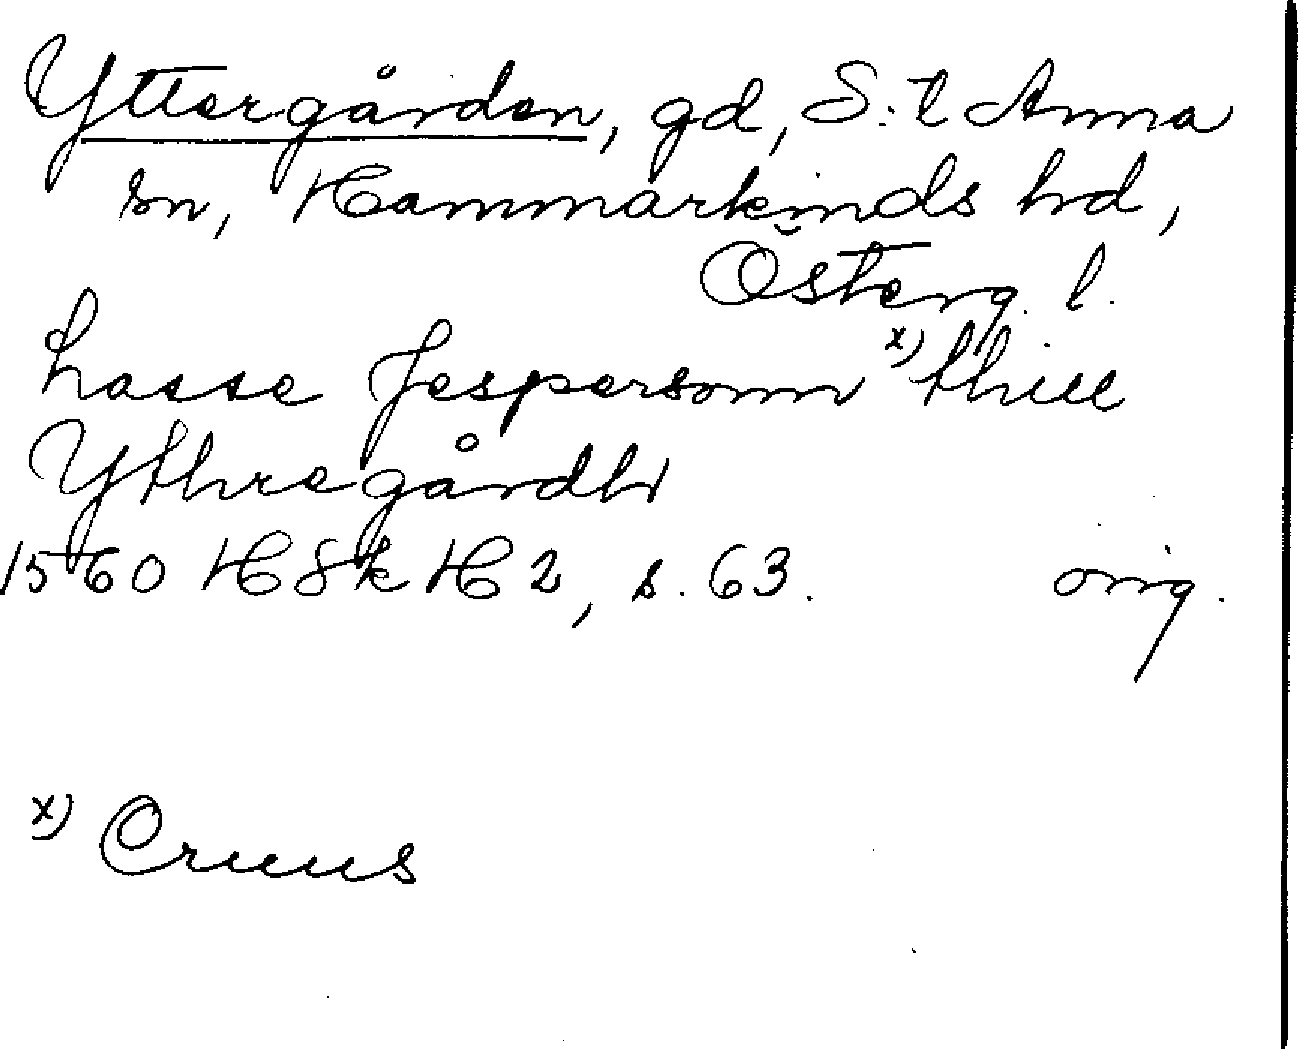 Yttergården, gd, S:t Anna
sn, Hammarkinds hd,
Österg. l.
Lasse Jespersonn x) thill
Ythregårdh
1560 HSkH 2, s. 63. orig.
x) Cruus